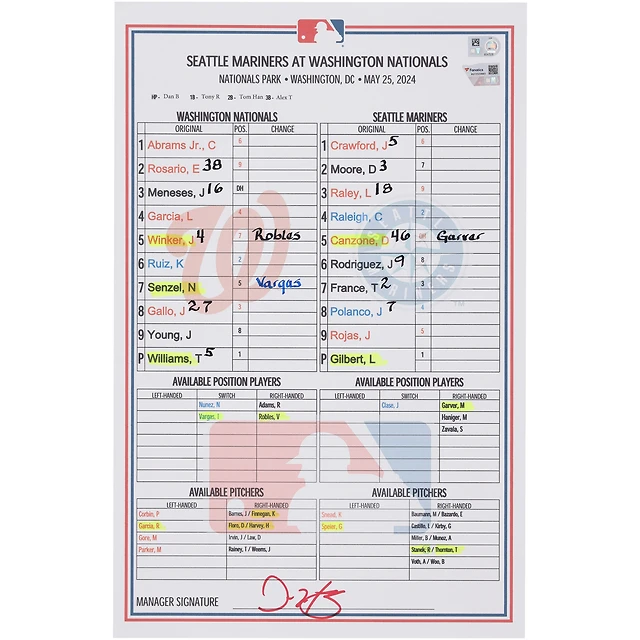 SEATTLE MARINERS AT WASHINGTON NATIONALS
NATIONALS PARK • WASHINGTON, DC • MAY 25, 2024
HP- Dan B 1B - Tony R 2B - Tom Han 3B - Alex T
WASHINGTON NATIONALS SEATTLE MARINERS
ORIGINAL POS. CHANGE ORIGINAL POS. CHANGE
1 Abrams Jr., C 6 1 Crawford, J 5 6
2 Rosario, E 38 9 2 Moore, D 3 7
3 Meneses, J 16 DH 3 Raley, L 18 9
4 Garcia, L 4 4 Raleigh, C 2
5 Winker, J 4 7 Robles 5 Canzone, D 46 DH Garver
6 Ruiz, K 2 6 Rodriguez, J 9 8
7 Senzel, N 5 Vargas 7 France, T 2 3
8 Gallo, J 27 3 8 Polanco, J 7 4
9 Young, J 8 9 Rojas, J 5
P Williams, T 5 1 P Gilbert, L 1
AVAILABLE POSITION PLAYERS AVAILABLE POSITION PLAYERS
LEFT-HANDED SWITCH RIGHT-HANDED LEFT-HANDED SWITCH RIGHT-HANDED
Nunez, N Adams, R Clase, J Garver, M
Vargas, I Robles, V Haniger, M
Zavala, S
AVAILABLE PITCHERS AVAILABLE PITCHERS
LEFT-HANDED RIGHT-HANDED LEFT-HANDED RIGHT-HANDED
Corbin, P Barnes, J / Finnegan, K Snead, K Baumann, M / Bazardo, E
Garcia, R Floro, D / Harvey, H Speier, G Castillo, L / Kirby, G
Gore, M Irvin, J / Law, D Miller, B / Munoz, A
Parker, M Rainey, T / Weems, J Stanek, R / Thornton, T
Voth, A / Woo, B
MANAGER SIGNATURE